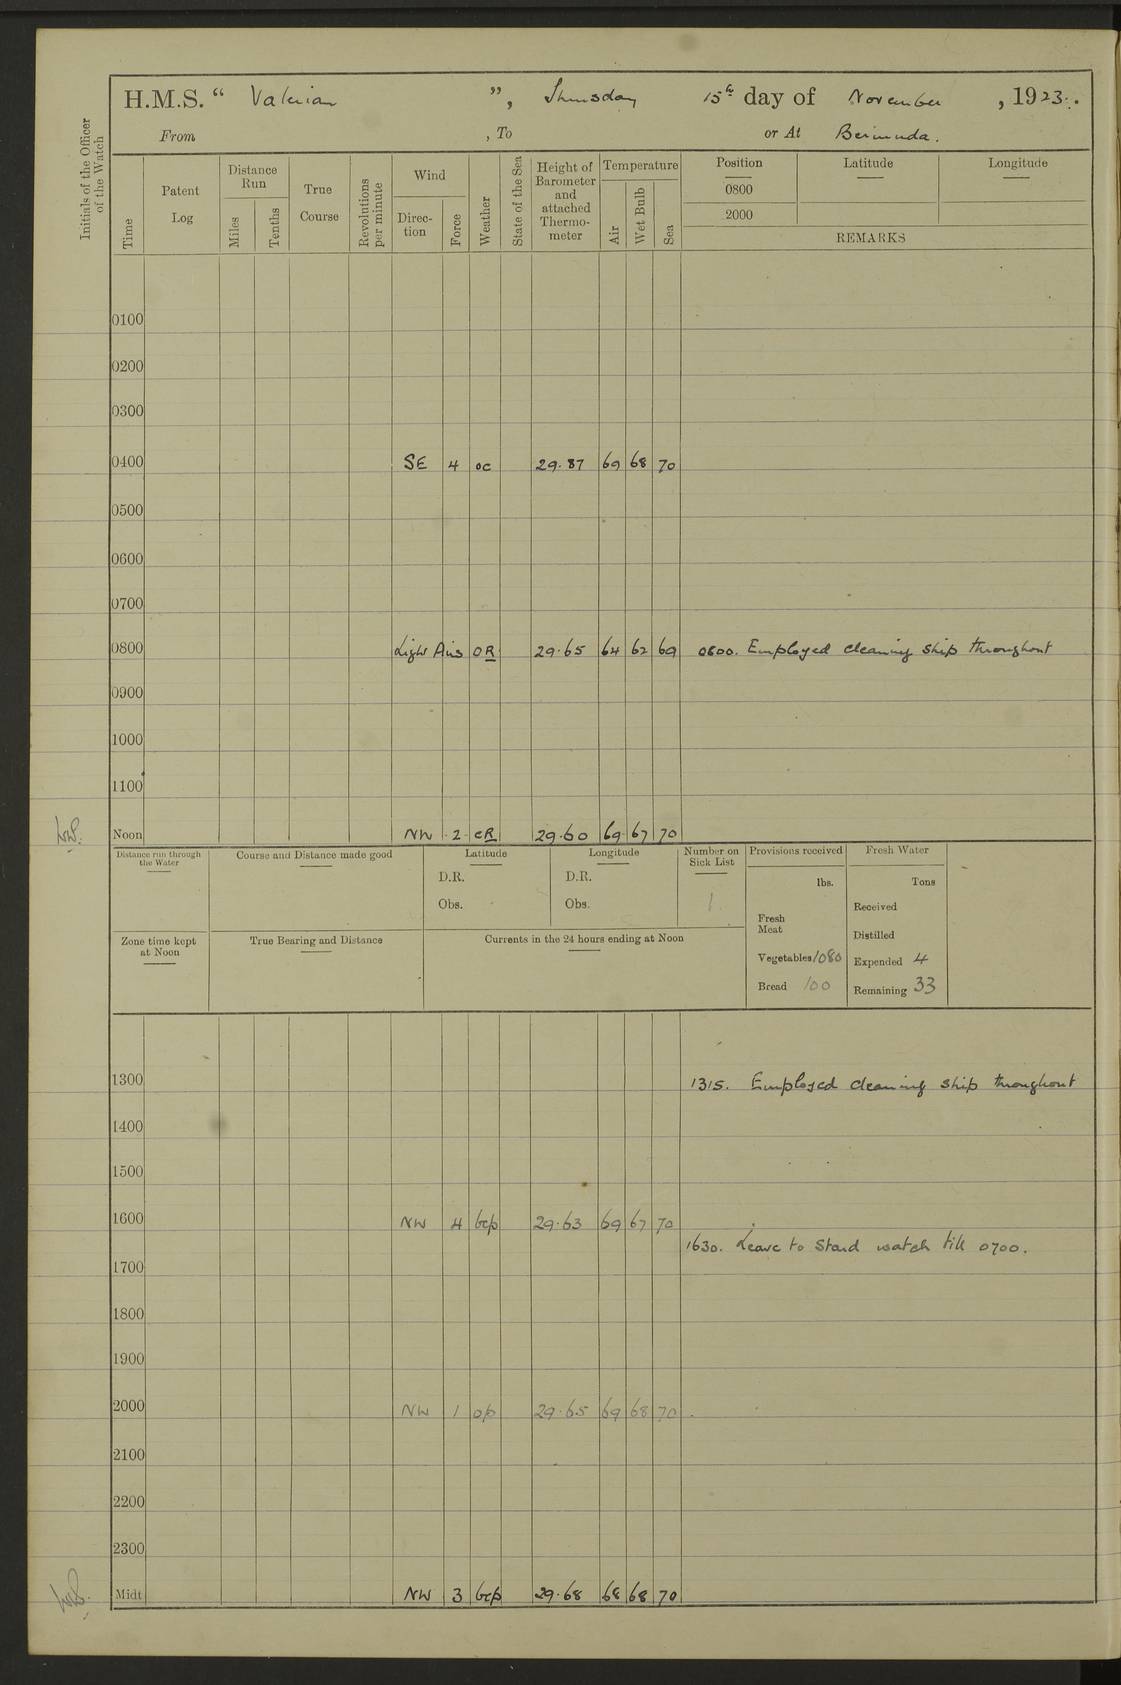 H.M.S. " Valerian ", Thursday 15th day of November, 1923.
From , To or At Bermuda.
Initials of the Officer of the Watch
Time
Patent Log
Distance Run
Miles
Tenths
True Course
Revolutions per minute
Wind
Direc-tion
Force
Weather
State of the Sea
Height of Barometer and attached Thermo-meter
Temperature
Air
Wet Bulb
Sea
Position Latitude Longitude
0800
2000
REMARKS
0100
0200
0300
0400 SE 4 oc 29.87 69 68 70
0500
0600
0700
0800 Light Airs OR 29.65 64 62 69 0800. Employed cleaning ship throughout
0900
1000
1100
Noon NW 2 cR 29.60 69 67 70
Distance run through the Water
Course and Distance made good
Latitude
D.R.
Obs.
Longitude
D.R.
Obs.
Number on Sick List
1
Provisions received
lbs.
Fresh Meat
Vegetables 1080
Bread 100
Fresh Water
Tons
Received
Distilled
Expended 4
Remaining 33
Zone time kept at Noon
True Bearing and Distance
Currents in the 24 hours ending at Noon
1300 1315. Employed cleaning ship throughout
1400
1500
1600 NW 4 bcp 29.63 69 67 70
1630. Leave to Stard watch till 0700.
1700
1800
1900
2000 NW 1 op 29.65 69 68 70
2100
2200
2300
Midt NW 3 bcp 29.68 68 68 70